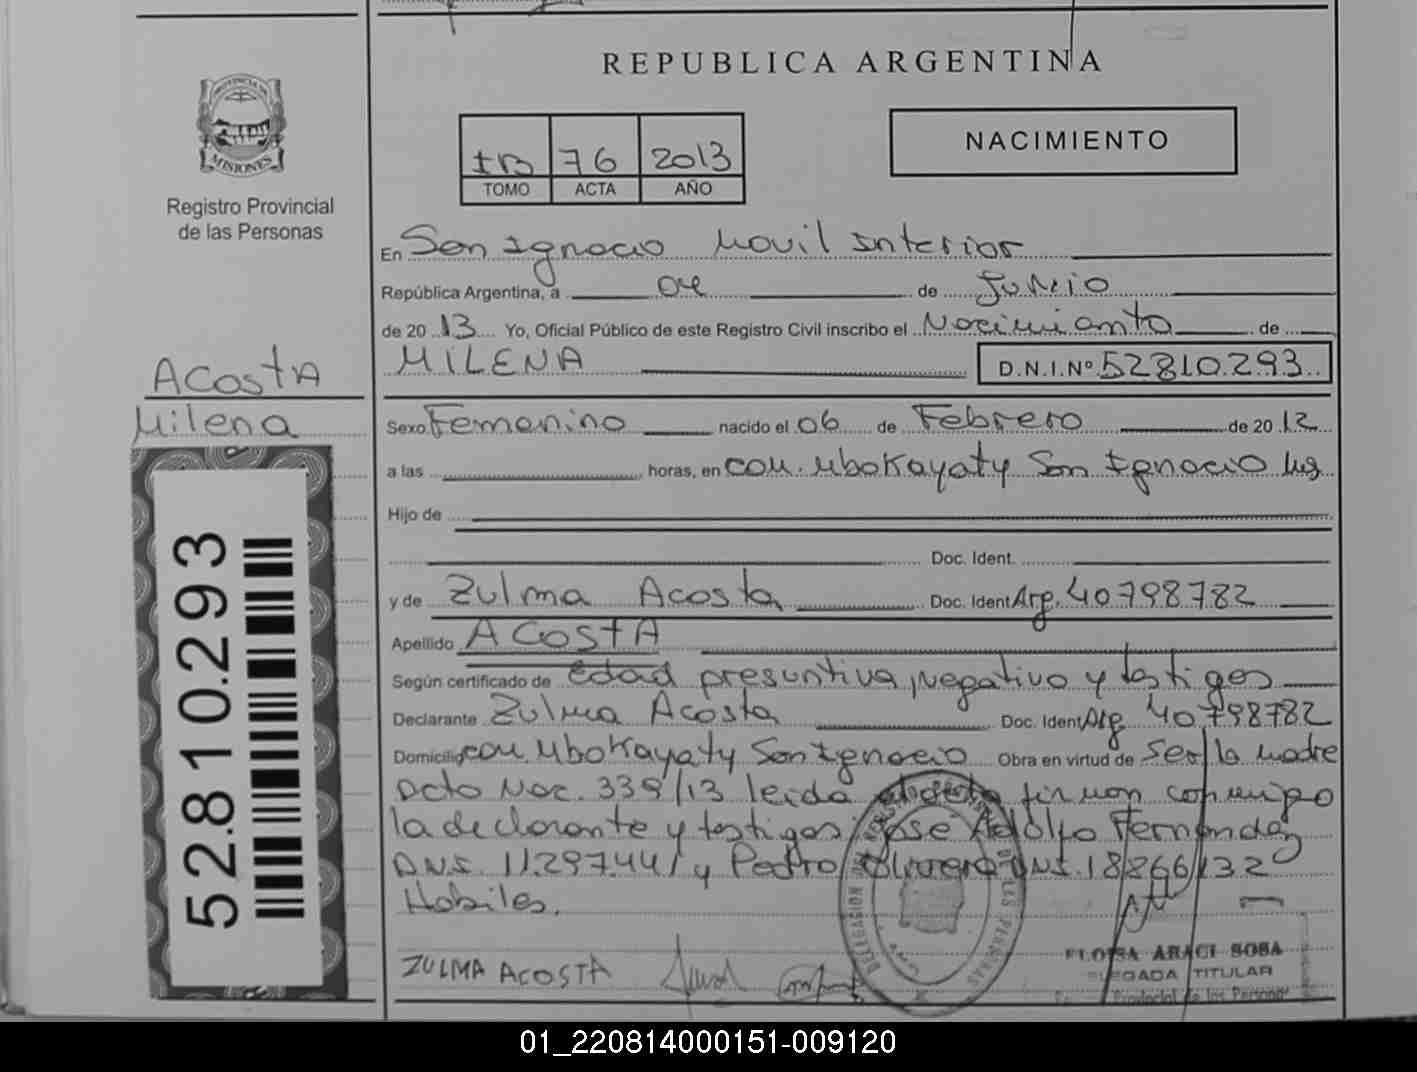 REPUBLICA ARGENTINA
PROVINCIA DE
MISIONES
Registro Provincial
de las Personas
NACIMIENTO
76 2013
TOMO ACTA AÑO
En San Ignacio Movil Interior
República Argentina, a 04 de Junio
de 20 13 Yo, Oficial Público de este Registro Civil inscribo el Nacimiento de
MILENA D.N.I.Nº 52810293
ACOSTA
Milena
Sexo Femenino nacido el 06 de Febrero de 20 12
a las horas, en com. Mbokayaty San Ignacio
Hijo de
Doc. Ident.
y de Zulma Acosta Doc. Ident Arg. 40798782
Apellido ACOSTA
Según certificado de edad presuntiva, negativo y testigos
Declarante Zulma Acosta Doc. Ident Arg 40798782
Domicilio com Mbokayaty San Ignacio Obra en virtud de ser la madre
Dcto Nac. 339/13 leida el acta firman conmigo
la declarante y testigos Jose Adolfo Fernandez
D.N.I. 11.297.441 y Pedro Olivera DNI. 18266132
Habiles.
ZULMA ACOSTA
ELOISA ARACI SOSA
DELEGADA TITULAR
Provincial de las Personas
52.810.293
01_220814000151-009120